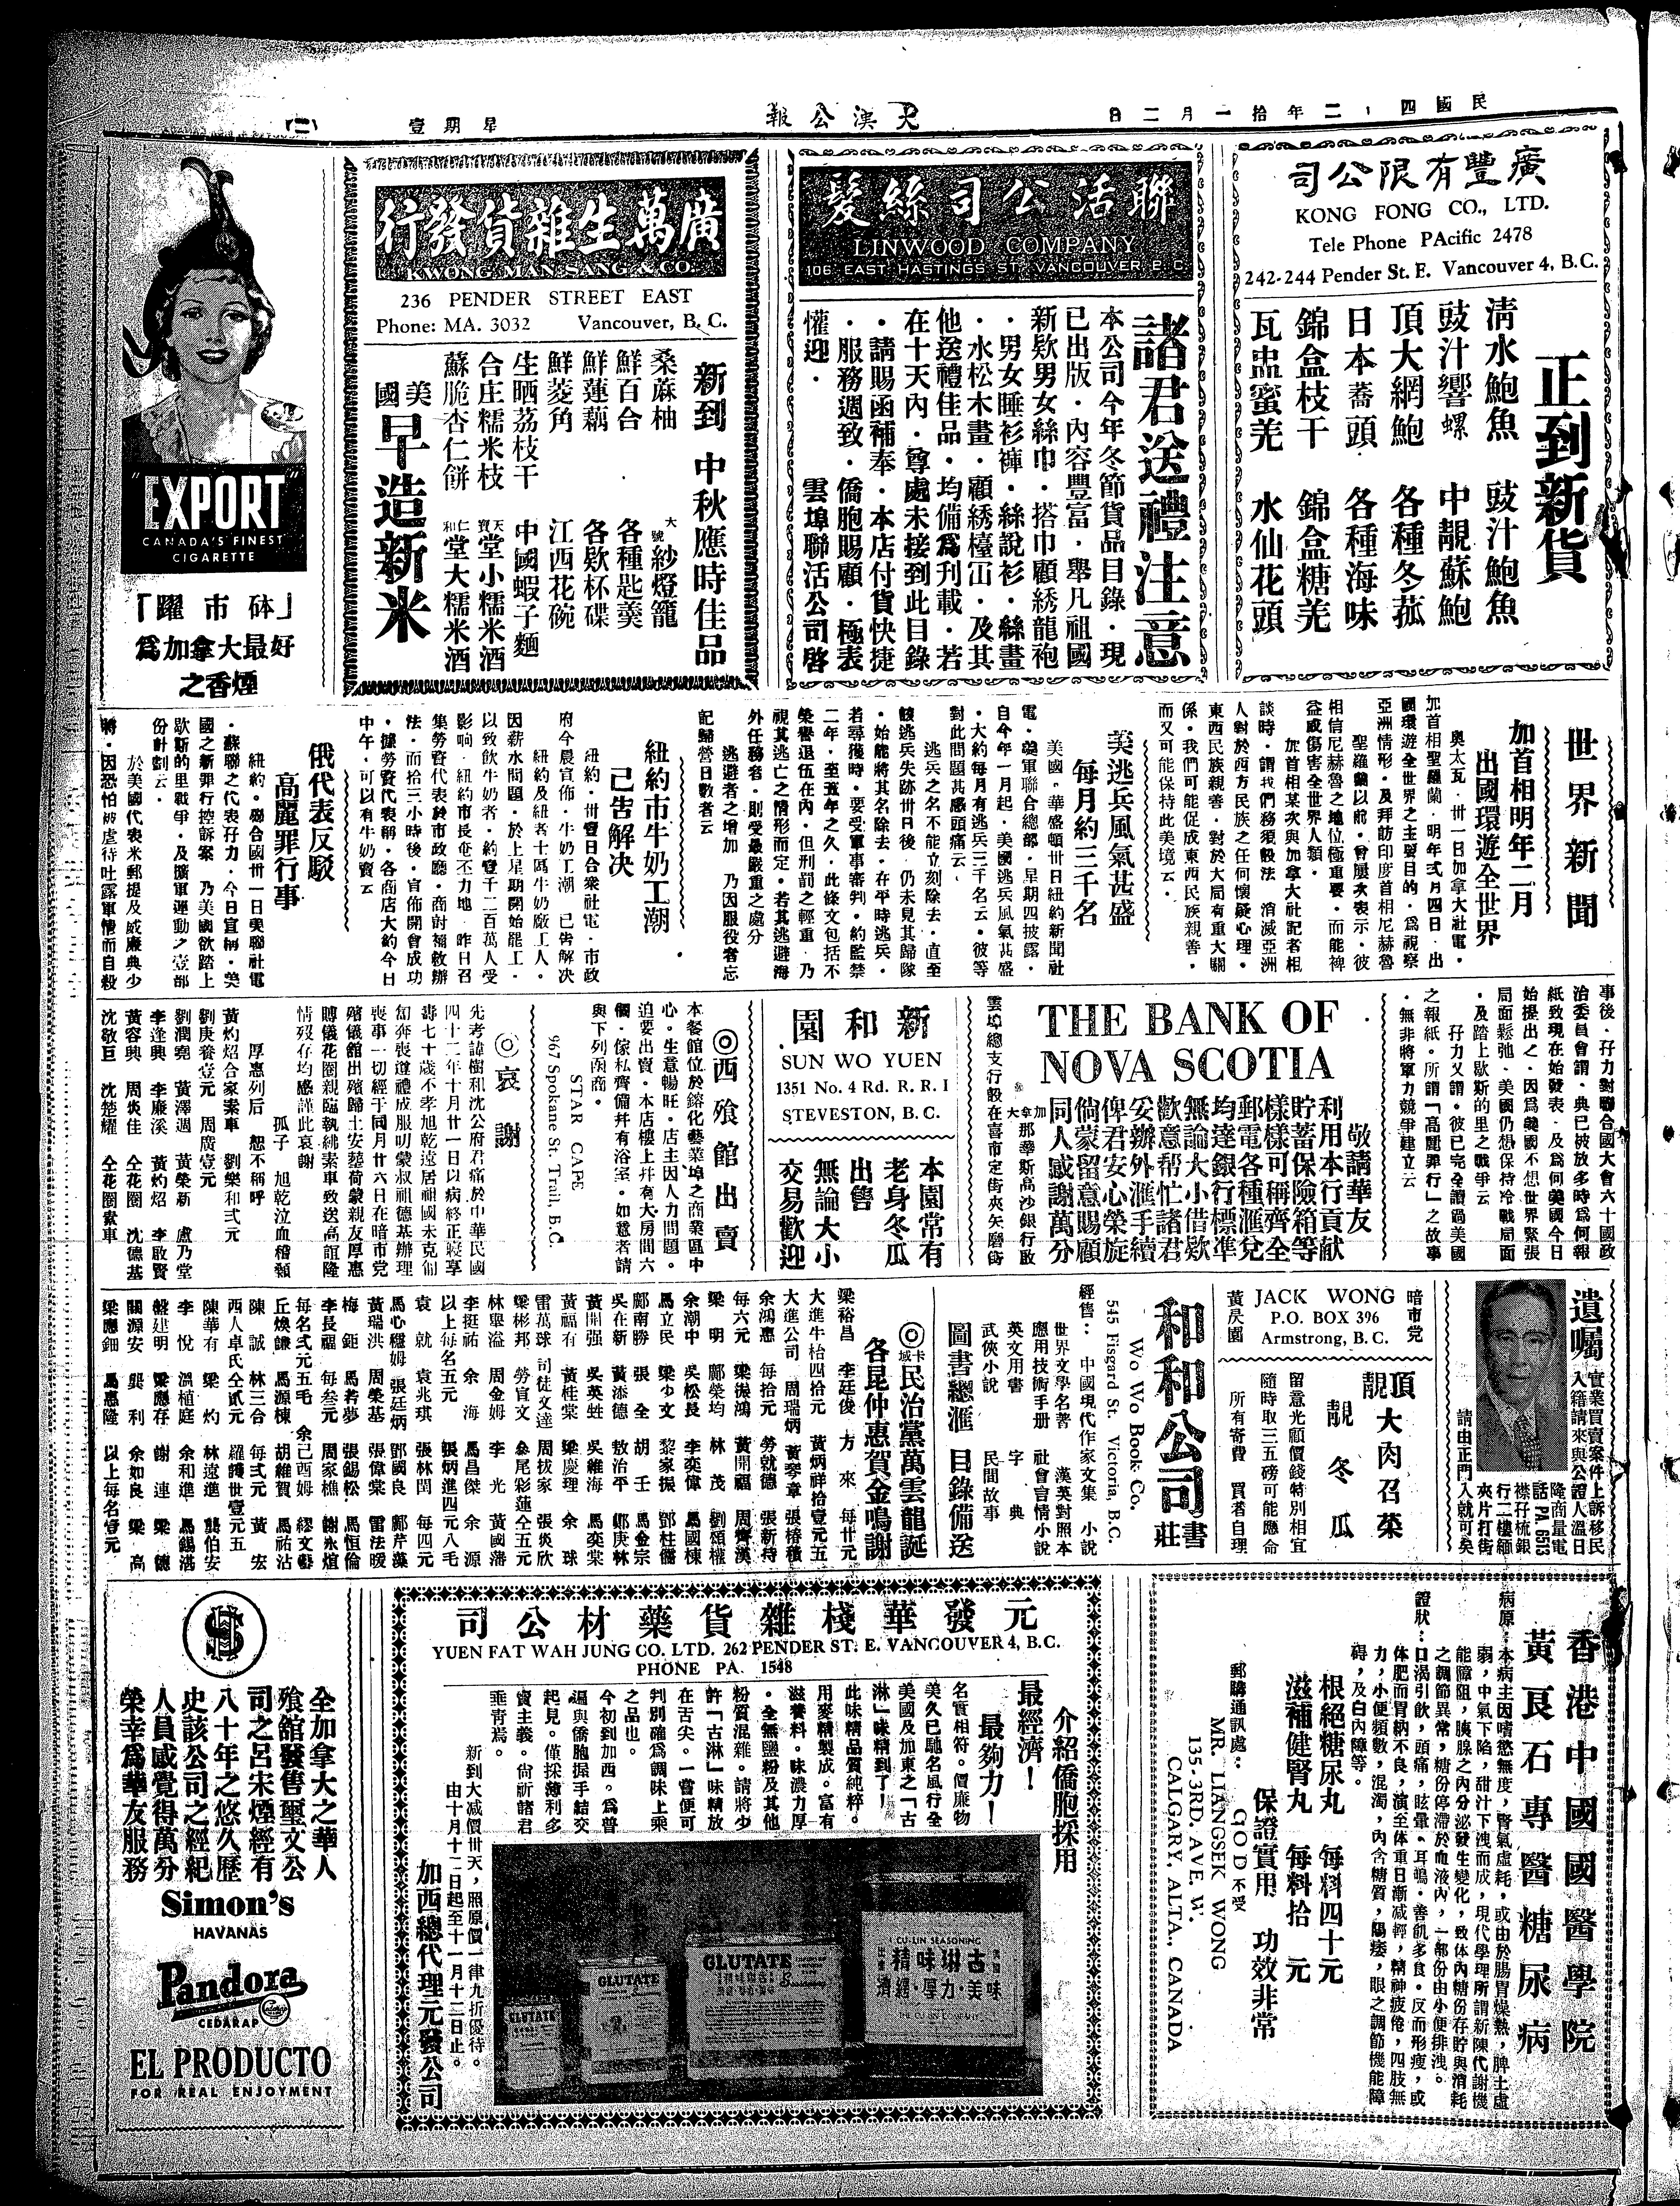 民國四十二年拾一月二日
大漢公報
星期壹
(二)
廣豐有限公司
KONG FONG CO., LTD.
Tele Phone PAcific 2478
242-244 Pender St. E. Vancouver 4, B.C.
正到新貨
清水鮑魚 豉汁鮑魚
豉汁響螺 中靚蘇鮑
頂大網鮑 各種冬菰
日本蕎頭 各種海味
錦盒枝干 錦盒糖羌
瓦盅蜜羌 水仙花頭
聯活公司絲髮
LINWOOD COMPANY
106 EAST HASTINGS ST. VANCOUVER B C
諸君送禮注意
本公司今年冬節貨品目錄·現
已出版·內容豐富·舉凡祖國
新欵男女絲巾·搭巾顧綉龍袍
·男女睡衫褲·絲說衫·絲畫
·水松木畫·顧綉檯㠪·及其
他送禮佳品·均備爲刊載·若
在十天內·尊處未接到此目錄
·請賜函補奉·本店付貨快捷
·服務週致·僑胞賜顧·極表
懽迎· 雲埠聯活公司啓
廣萬生雜貨發行
KWONG MAN SANG & CO
236 PENDER STREET EAST
Phone: MA. 3032 Vancouver, B. C.
新到 中秋應時佳品
桑蔴柚 大號紗燈籠
鮮百合 各種匙羹
鮮蓮藕 各欵杯碟
鮮菱角 江西花碗
生晒荔枝干 中國蝦子麵
合庄糯米枝 天寶堂小糯米酒
蘇脆杏仁餅 仁和堂大糯米酒
美國早造新米
"EXPORT"
CANADA'S FINEST
CIGARETTE
「砵市躍」
爲加拿大最好
之香煙
世界新聞
加首相明年二月
出國環遊全世界
奥太瓦·卅一日加拿大社電·
加首相聖羅蘭·明年弍月四日·出
國環遊全世界之主要目的·爲視察
亞洲情形·及拜訪印度首相尼赫魯
聖羅蘭以前·曾屢次表示·彼
相信尼赫魯之地位極重要·而能裨
益或傷害全世界人類·
加首相某次與加拿大社記者相
談時·謂我們務須設法 消滅亞洲
人對於西方民族之任何懷疑心理·
東西民族親善·對於大局有重大關
係·我們可能促成東西民族親善·
而又可能保持此美境云·
美逃兵風氣甚盛
每月約三千名
美國·華盛頓卅日紐約新聞社
電·韓軍聯合總部·星期四披露·
自今年一月起·美國逃兵風氣甚盛
·大約每月有逃兵三千名云·彼等
對此問題甚感頭痛云·
逃兵之名不能立刻除去·直至
該逃兵失跡卅日後 仍未見其歸隊
·始能將其名除去·在平時逃兵·
若尋獲時·要受軍事審判·約監禁
二年·至五年之久·此條文包括不
榮譽退伍在內·但刑罰之輕重·乃
視其逃亡之情形而定·若其逃避海
外任務者·則受最嚴重之處分
逃避者之增加 乃因服役者忘
記歸營日數者云
紐約市牛奶工潮
已告解决
紐約·卅壹日合衆社電·市政
府今晨宣佈·牛奶工潮 已告解决
紐約及紐者士區牛奶廠工人·
因薪水問題·於上星期開始罷工·
以致飲牛奶者·約壹千二百萬人受
影响·紐約市長在不力地·昨日召
集勞資代表於市政廳·商討補救辦
法·而拾三小時後·宣佈開會成功
·據勞資代表稱·各商店大約今日
中午·可以有牛奶賣云
俄代表反駁
高麗罪行事
紐約·聯合國卅一日美聯社電
·蘇聯之代表孖力·今日宣稱·美
國之新罪行控訴案 乃美國欲踏上
歇斯的里戰爭·及擴軍運動之壹部
份計劃云·
於美國代表米郵提及威廉典少
將·因恐怕被虐待吐露軍情而自殺
事後·孖力對聯合國大會六十國政
治委員會謂·典已被放多時爲何報
紙致現在始發表·及爲何美國今日
始提出之·因爲美國不想世界緊張
局面鬆弛·美國仍想保持冷戰局面
·及踏上歇斯的里之戰爭云
孖力又謂·彼已完全讀過美國
之報紙·所謂「高麗罪行」之故事
·無非將軍力競爭建立云
THE BANK OF
NOVA SCOTIA
敬請華友
利用本行貢献
貯蓄保險箱等
樣樣可稱齊全
郵電各種滙兌
均達銀行標準
無論大小借欵
歡意帮忙諸君
妥辦外滙手續
俾君安心榮旋
倘蒙留意賜顧
同人感謝萬分
加拿大那華斯高沙銀行啟
雲埠總支行設在喜市定街夾矢磨街
新和園
SUN WO YUEN
1351 No. 4 Rd. R. R. I
STEVESTON, B. C.
本園常有
老身冬瓜
出售
無論大小
交易歡迎
◎西飱館出賣
本餐館位於鎔化藝業埠之商業區中
心。生意暢旺。店主因人力問題。
迫要出賣。本店樓上并有大房間六
個·傢私齊備幷有浴室。如意者請
與下列函商。
STAR CAPE
967 Spokane St. Trail, B.C.
◎哀謝
先考諱樹和沈公府君痛於中華民國
四十二年十月廿一日以病終正寢享
壽七十歲不孝旭乾遠居祖國未克匍
匐奔喪遵禮成服叨蒙叔祖德基辦理
喪事一切經于同月廿六日在暗市党
殯儀館出殯歸土安塟荷蒙親友厚惠
賻儀花圈親臨執紼素車致送高誼隆
情歿存均感謹此哀謝
孤子 旭乾泣血稽顙
厚惠列后 恕不稱呼
黃灼炤合家素車 劉樂和弍元
劉庚養壹元 周廣壹元
劉潤堯 黃澤週 黃榮新 盧乃堂
李逢興 李廉溪 黃灼炤 李啟賢
黃容興 周炎佳 仝花圈 沈德基
沈敬巨 沈楚耀 仝花圈素車
遺囑
實業買賣案件上訴移民
入籍請來與公證人溫日
請由正門入就可矣
PA. 6513
暗市党
JACK WONG
P.O. BOX 396
Armstrong, B. C.
黃昃園
頂靚大肉召菜
靚冬瓜
留意光顧價錢特別相宜
隨時取三五磅可能應命
所有寄費 買者自理
和和公司書莊
Wo Wo Book Co.
545 Fisgard St. Victoria, B.C.
經售: 中國現代作家文集 小說
世界文學名著 漢英對照本
應用技術手册 社會言情小說
英文用書 字典
武俠小說 民間故事
圖書總滙 目錄備送
◎卡城民治黨萬雲龍誕
各昆仲惠賀金鳴謝
梁裕昌 李廷俊 方來 每廿元
大進牛枱四拾元 黃炳祥拾壹元五
大進公司 周瑞炳 黃琴章 張椿積
余鴻惠 每拾元 勞就德 張新持
每六元 梁振鴻 黃開福 周齊漢
梁明 鄺榮均 林茂 劉頌權
余潮中 吳松長 李奕偉 馬國棟
馬立民 梁少文 黎家振 鄧柱儒
鄺南勝 張全 胡壬 馬金宗
吳在新 黃添德 敖治平 鄭庚林
黃開强 吳英甡 吳維海 馬奕棠
黃福有 黃桂棠 梁慶理 余球
雷萬球 司徒文達 周枝家 張炎欣
梁彬邦 勞官文 參尾彩蓮仝五元
林聚溢 周金姆 李光 黃國藩
李挺祐 余海 馬昌傑 余源
以上每名五元 張炳進四元八毛
袁就 袁兆琪 張林閏 每四元
馬心穩姆 張廷炳 鄧國良 鄺芹藻
黃瑞洪 周榮基 張偉棠 雷法暖
梅鉅 馬若夢 張錫松 馬恒倫
李長福 每叁元 周家樵 謝永煊
每名弍元五毛 余己酉姆 繆文藝
丘煥謙 馬源棟 胡維賀 馬祐沾
陳誠 林三合 每弍元 黃宏
西人卓氏仝貳元 羅護世壹元五
陳華有 梁灼 林遠進 龔伯安
李悅 溫植庭 余和進 馬錫湛
盤建明 梁應存 謝連 梁德
關源安 龔利 余如良 梁高
梁應鈿 馬惠隆 以上每名壹元
香港中國國醫學院
黃良石專醫糖尿病
病原:本病主因嗜慾無度,腎氣虛耗,或由於腸胃燥熱,脾土虛
弱,中氣下陷,甜汁下洩而成,現代學理所謂新陳代謝機
能障阻,胰腺之內分泌發生變化,致体內糖份存貯與消耗
之調節異常,糖份停滯於血液內,一部份由小便排洩。
證狀:口渴引飲,頭痛,眩暈。耳鳴。善飢多食。反而形瘦,或
体肥而胃納不良,演至体重日漸减輕,精神疲倦,四肢無
力,小便頻數,混濁,內含糖質,陽痿,眼之調節機能障
碍,及白內障等。
根絕糖尿丸 每料四十元
滋補健腎丸 每料拾元
保證實用 功效非常
郵購通訊處: GOD不受
MR. LIANGSEK WONG
135-3RD. AVE W.
CALGARY, ALTA., CANADA
元發華棧雜貨藥材公司
YUEN FAT WAH JUNG CO. LTD. 262 PENDER ST. E. VANCOUVER 4, B.C.
PHONE PA. 1548
介紹僑胞採用
最經濟! 最夠力!
名實相符。價廉物
美久已馳名風行全
美國及加東之「古
淋」味精到了!
此味精品質純粹。
用麥精製成。富有
滋養料。味濃力厚
。全無鹽粉及其他
粉質混雜。請將少
許「古淋」味精放
在舌尖。一嘗便可
判別確爲調味上乘
之品也。
今初到加西。爲普
遍與僑胞握手結交
起見。僅採薄利多
賣主義。尙祈諸君
垂靑焉。
新到大减價卅天,照原價一律九折優待。
由十月十二日起至十一月十二日止。
加西總代理元發公司
CU-LIN SEASONING
古淋味精
美味·力厚·經濟
GLUTATE
GLUTATE
GLUTATE
全加拿大之華人
飱館發售璽文公
司之呂宋煙經有
八十年之悠久歷
史該公司之經紀
人員感覺得萬分
榮幸爲華友服務
Simon's
HAVANAS
Pandora
CEDARAP
EL PRODUCTO
FOR REAL ENJOYMENT